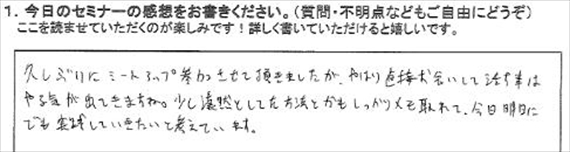 1. 今日のセミナーの感想をお書きください。(質問・不明点などもご自由にどうぞ)
ここを読ませていただくのが楽しみです!詳しく書いていただけると嬉しいです。
久しぶりにミートアップ参加させて頂きましたが、やはり直接お会いして話す事は
やる気が出てきますね。少し漠然としてた方法とかもしっかりメモ取れて、今日明日に
でも実践していきたいと考えています。